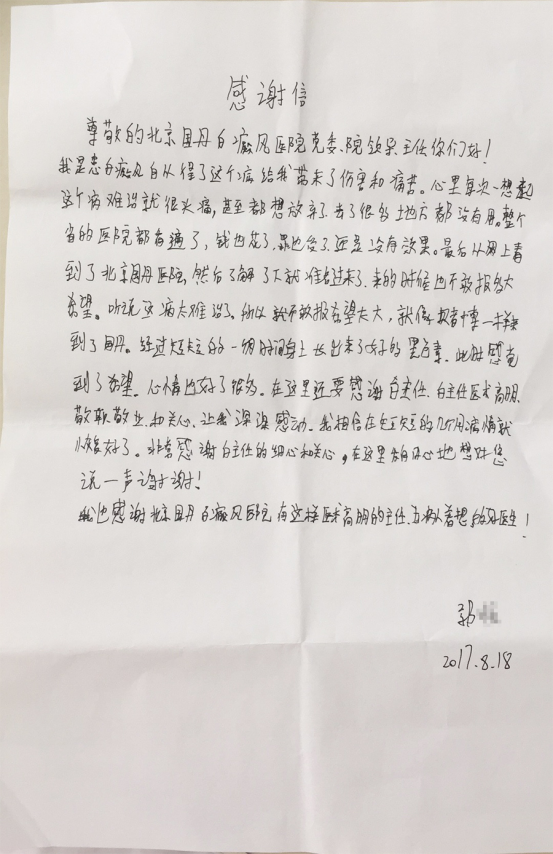 感谢信
尊敬的北京国丹白癜风医院党委、院领导主任你们好！
我是患白癜风自从得了这个病给我带来了伤害和痛苦。心里每次一想起
这个病难治就很头痛，甚至都想放弃了。去了很多地方都没有用。整个
省的医院都看遍了，钱也花了，罪也受了。还是没有效果。最后从网上看
到了北京国丹医院，然后了解了下就准备过来了。来的时候也不敢报多大
希望。听说这病太难治了。所以就不敢报希望太大，就像 着博一样来
到了国丹。经过短短的一周时间身上长出来了好的黑色素。此时感觉
到了希望。心情也好了很多。在这里还要感谢白主任。白主任医术高明。
敬职敬业和关心。让我深深感动。我相信在短短的几个月病情就
恢复好了。非常感谢白主任的细心和关心，在这里 心地想对您
说一声谢谢！
我也感谢北京国丹白癜风医院有这样医术高明的主任。为病人着想的好医生！
郭
2017.8.18